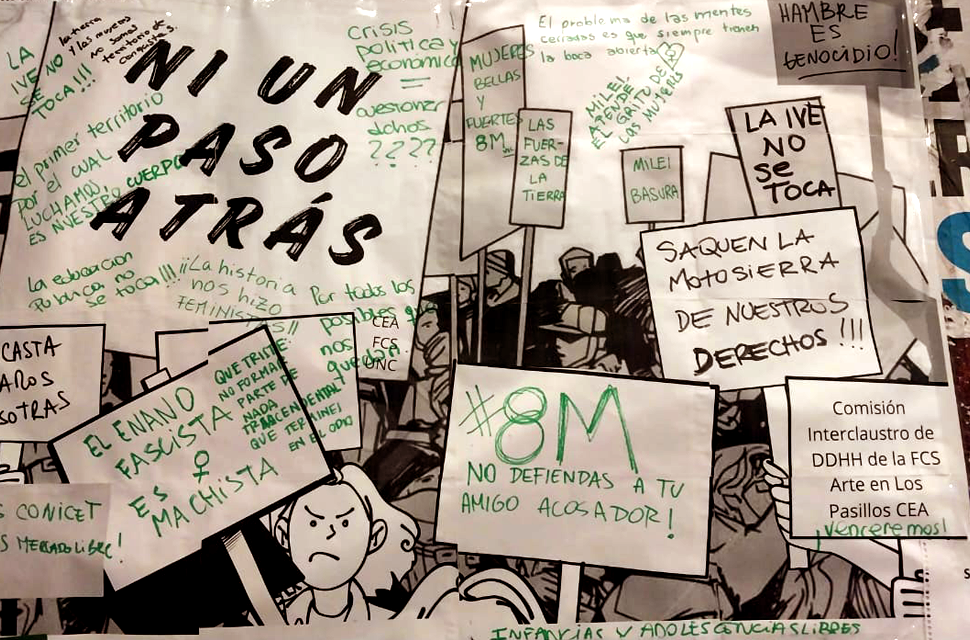 LA
IVE NO
SE
TOCA!!!
la tierra
y las mujeres
no somos
territorio de
conquista.
NI UN
PASO
ATRÁS
crisis
política y
económica
=
cuestionar
dchos
????
el primer territorio
por el cual
LUCHAMOS,
ES NUESTRO CUERPO
La educacion
Publica no
se toca!!!
¡¡La historia
nos hizo
FEMINISTAS!!
Por todos los
posibles que
nos
quedan
MUJERES
BELLAS
Y
FUERTES
8M
El problema de las mentes
cerradas es que siempre tienen
la boca abierta
MILEI
APENDE!
EL GRITO DE
LAS MUJERES
HAMBRE
ES
GENOCIDIO!
LAS
FUER-
ZAS DE
LA
TIERRA
MILEI
BASURA
LA IVE
NO
se
TOCA
SAQUEN LA
MOTOSIERRA
DE NUESTROS
DERECHOS!!!
CASTA
SOTRAS
EL ENANO
FASCISTA
ES
MACHISTA
QUE TRISTE
NO FORMAR
PARTE DE
NADA
TRASCENDENTAL
QUE TERMINE
EN EL ODIO
CEA
FCS
UNC
#8M
NO DEFIENDAS A TU
AMIGO ACOSADOR!
Comisión
Interclaustro de
DDHH de la FCS
Arte en Los
Pasillos CEA
¡Venceremos!
CONICET
MERCADO LIBRE!
INFANCIAS Y ADOLESCENCIAS LIBRES